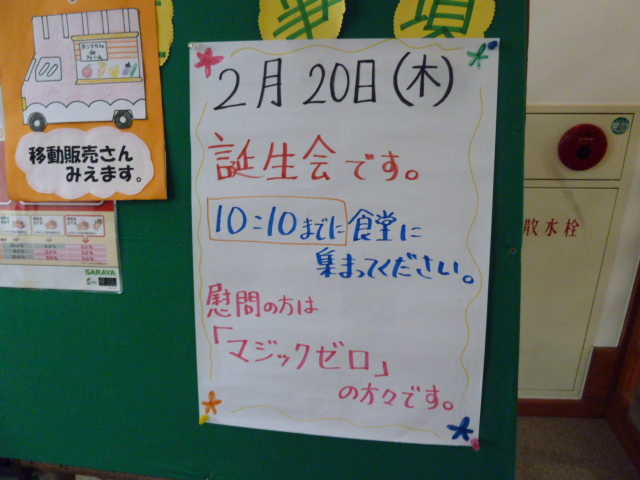 事項
2月20日(木)
誕生会です。
10:10までに食堂に
集まってください。
慰問の方は
「マジックゼロ」
の方々です。
移動販売さん
みえます。
SARAYA
散水栓